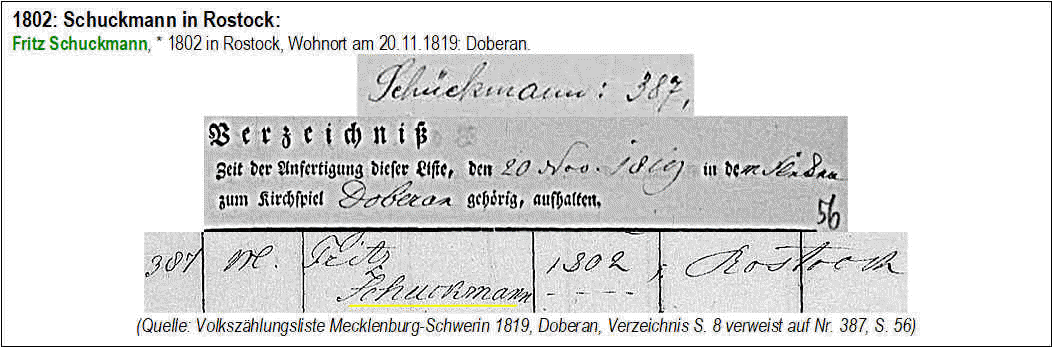 1802: Schuckmann in Rostock:
Fritz Schuckmann, * 1802 in Rostock, Wohnort am 20.11.1819: Doberan.
Schuckmann: 387,
Verzeichniß
Zeit der Anfertigung dieser Liste, den 20 Nov. 1819 in dem Flecken
zum Kirchspiel Doberan gehörig, aufhalten.
56
387 M. Fritz 1802 ; Rostock
Schuckmann
(Quelle: Volkszählungsliste Mecklenburg-Schwerin 1819, Doberan, Verzeichnis S. 8 verweist auf Nr. 387, S. 56)